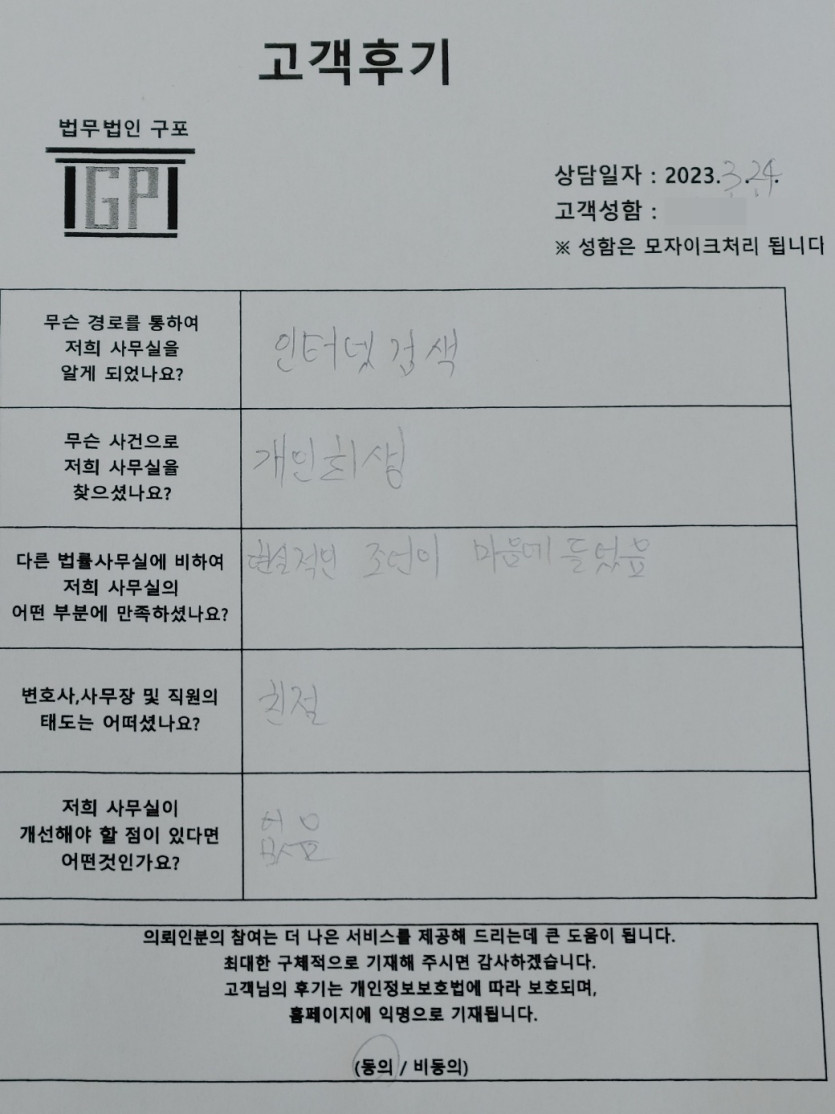 고객후기
법무법인 구포
GP
상담일자 : 2023.3.24.
고객성함 :
※ 성함은 모자이크처리 됩니다
무슨 경로를 통하여
저희 사무실을
알게 되었나요?
인터넷 검색
무슨 사건으로
저희 사무실을
찾으셨나요?
개인회생
다른 법률사무실에 비하여
저희 사무실의
어떤 부분에 만족하셨나요?
현실적인 조언이 마음에 들었음
변호사,사무장 및 직원의
태도는 어떠셨나요?
친절
저희 사무실이
개선해야 할 점이 있다면
어떤것인가요?
없음
의뢰인분의 참여는 더 나은 서비스를 제공해 드리는데 큰 도움이 됩니다.
최대한 구체적으로 기재해 주시면 감사하겠습니다.
고객님의 후기는 개인정보보호법에 따라 보호되며,
홈페이지에 익명으로 기재됩니다.
(동의 / 비동의)